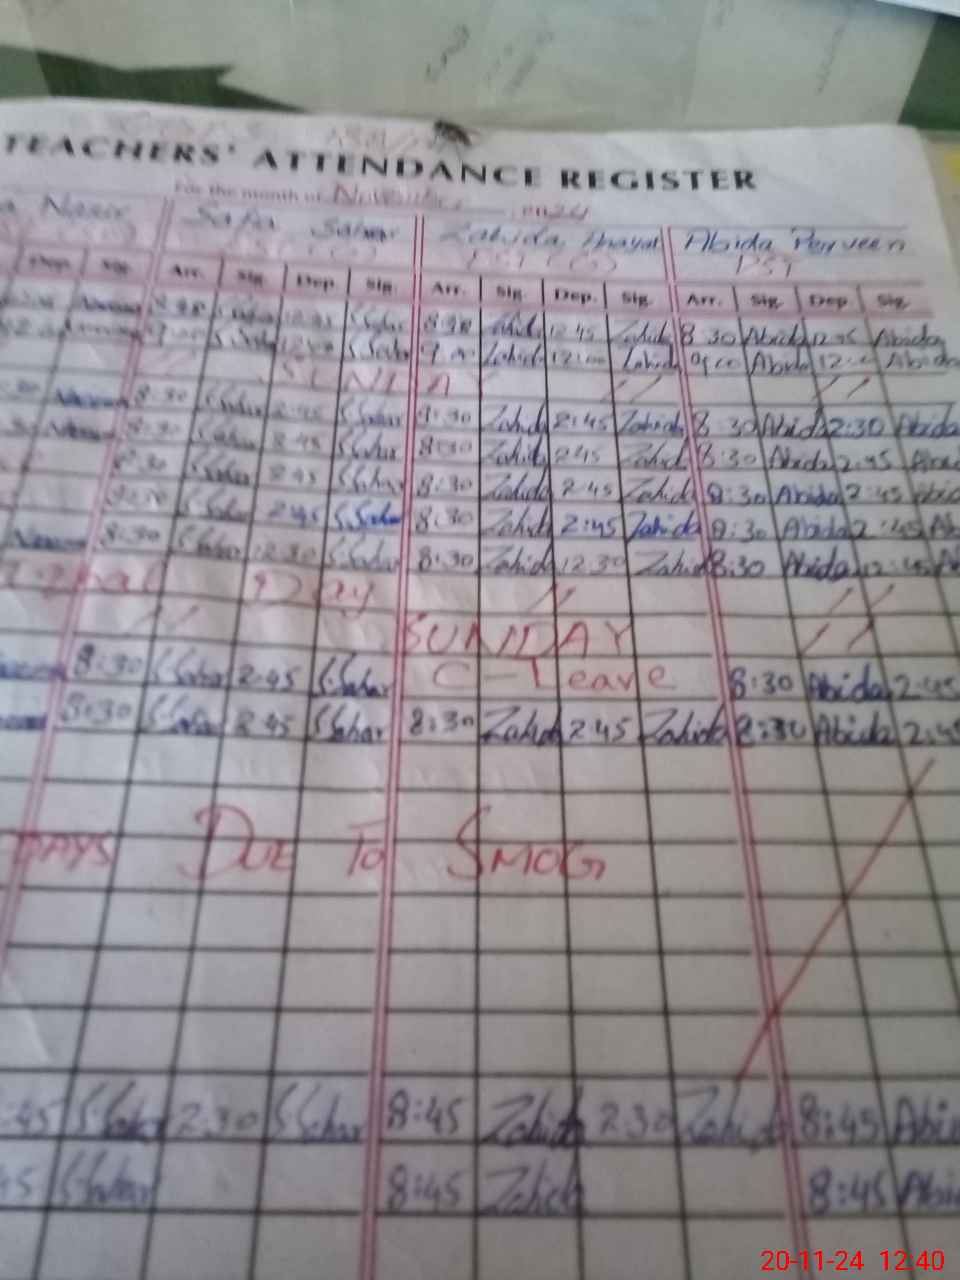 TEACHERS' ATTENDANCE REGISTER
For the month of November 2024
Nasir Safa Sahar Zahida Inayat Abida Perveen
PST
Dep. Sig. Arr. Sig. Dep. Sig. Arr. Sig. Dep. Sig. Arr. Sig. Dep. Sig.
12:45 SSahar 8:30 Zahida 12:45 Zahida 8:30 Abida Abida
SSahar 9:00 Zahida 12:00 Zahida 9:00 Abida Abida
SUNDAY // //
8:30 SSahar 2:45 SSahar 8:30 Zahida 2:45 Zahida 8:30 Abida 2:30 Abida
8:30 SSahar 2:45 SSahar 8:30 Zahida 2:45 Zahida 8:30 Abida 2:45 Abid
8:30 SSahar 2:45 SSahar 8:30 Zahida 2:45 Zahida 8:30 Abida 2:45 Abid
8:30 SSahar 2:45 SSahar 8:30 Zahida 2:45 Zahida 8:30 Abida 2:45 Ab
8:30 SSahar 12:30 SSahar 8:30 Zahida 12:30 Zahida 8:30 Abida
Iqbal Day // //
// SUNDAY //
8:30 SSahar 2:45 SSahar C-Leave 8:30 Abida 2:45
8:30 SSahar 2:45 SSahar 8:30 Zahida 2:45 Zahida 8:30 Abida 2:45
DAYS DUE TO SMOG
:45 SSahar 2:30 SSahar 8:45 Zahida 2:30 Zahida 8:45 Abi
45 SSahar 8:45 Zahida 8:45 Abi
20-11-24 12:40